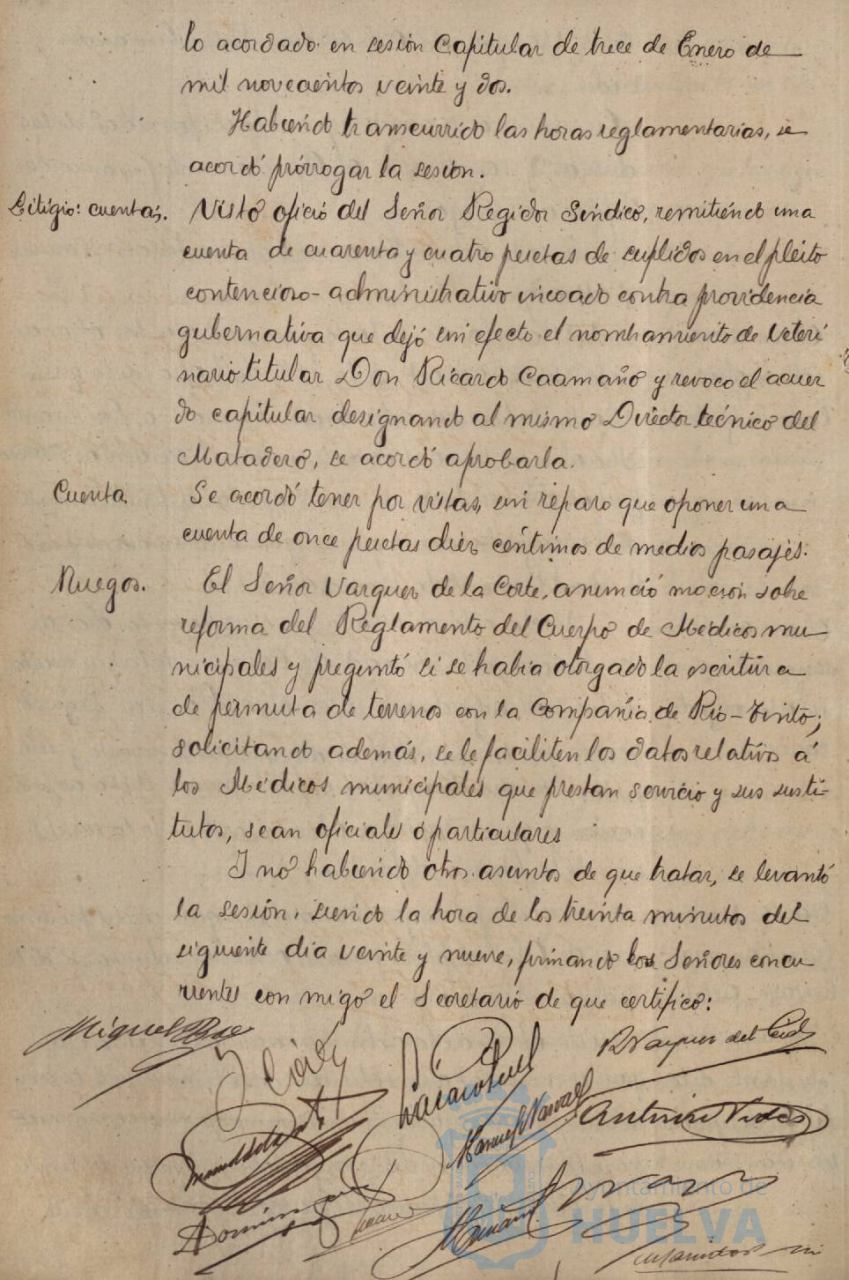 lo acordado en sesión Capitular de trece de Enero de
mil novecientos veinte y dos.
Habiendo transcurrido las horas reglamentarias, se
acordó prórrogar la sesión.
Litigio: cuentas.
Visto oficio del Señor Regidor Síndico, remitiendo una
cuenta de cuarenta y cuatro pesetas de suplidos en el pleito
contencioso-administrativo incoado contra providencia
gubernativa que dejó sin efecto el nombramiento de Veteri
nario titular Don Ricardo Caamaño y revoco el acuer
do capitular designando al mismo Director técnico del
Matadero, se acordó aprobarla.
Cuenta
Se acordó tener por vistas, sin reparo que oponer una
cuenta de once pesetas diez céntimos de medios pasajes.
Ruegos.
El Señor Vazquez de la Corte, anunció moción sobre
reforma del Reglamento del Cuerpo de Médicos mu
nicipales y preguntó si se habia otorgado la escritura
de permuta de terrenos con la Compañia de Rio-Tinto;
solicitando además, se le faciliten los datos relativos á
los Médicos municipales que prestan servicio y sus susti-
tutos, sean oficiales ó particulares
Y no habiendo otros asuntos de que tratar, se levantó
la sesión, siendo la hora de los treinta minutos del
siguiente dia veinte y nueve, firmando los Señores concu
rrentes con migo el Secretario de que certifico:
Miguel
Manuel
Antonio Vides
Domínguez
Mariano
Ayuntamiento de
HUELVA